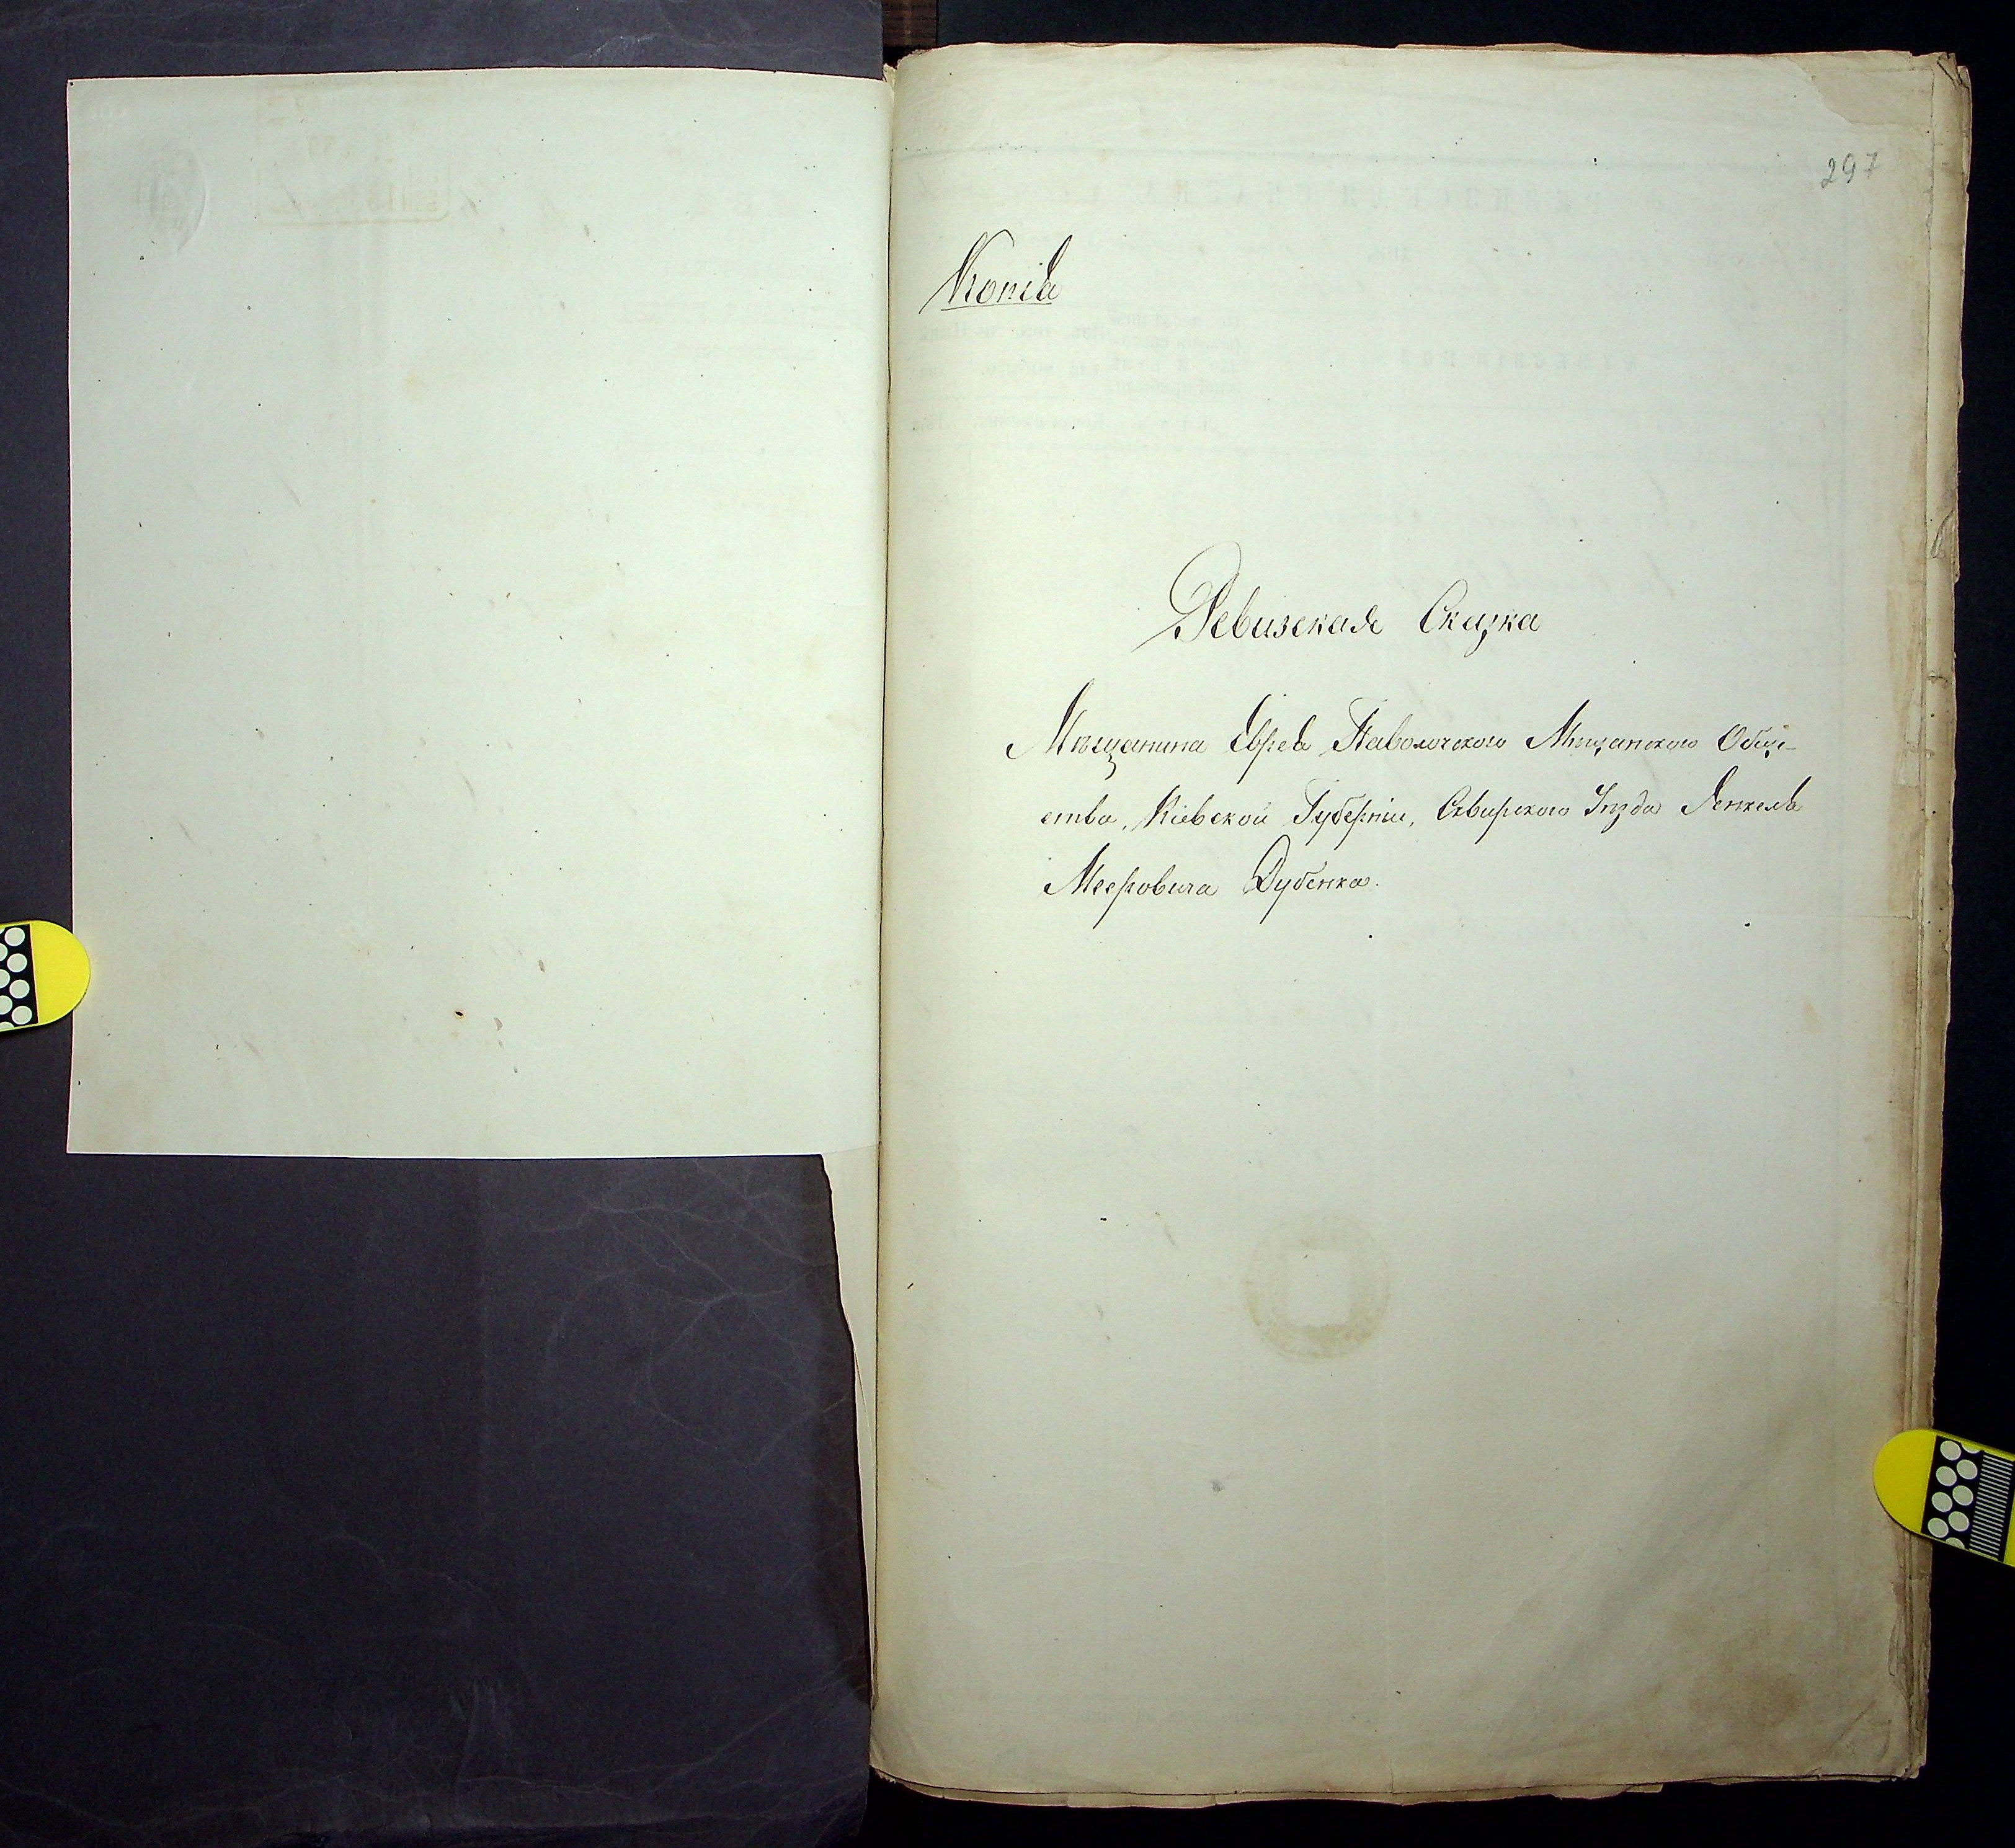 297
Копія
Ревизская Сказка
Мѣщанина Еврея Паволочского Мѣщанского Обще-
ства, Кіевской Губерніи, Сквирского Уѣзда Янкеля
Мееровича Дубенка.